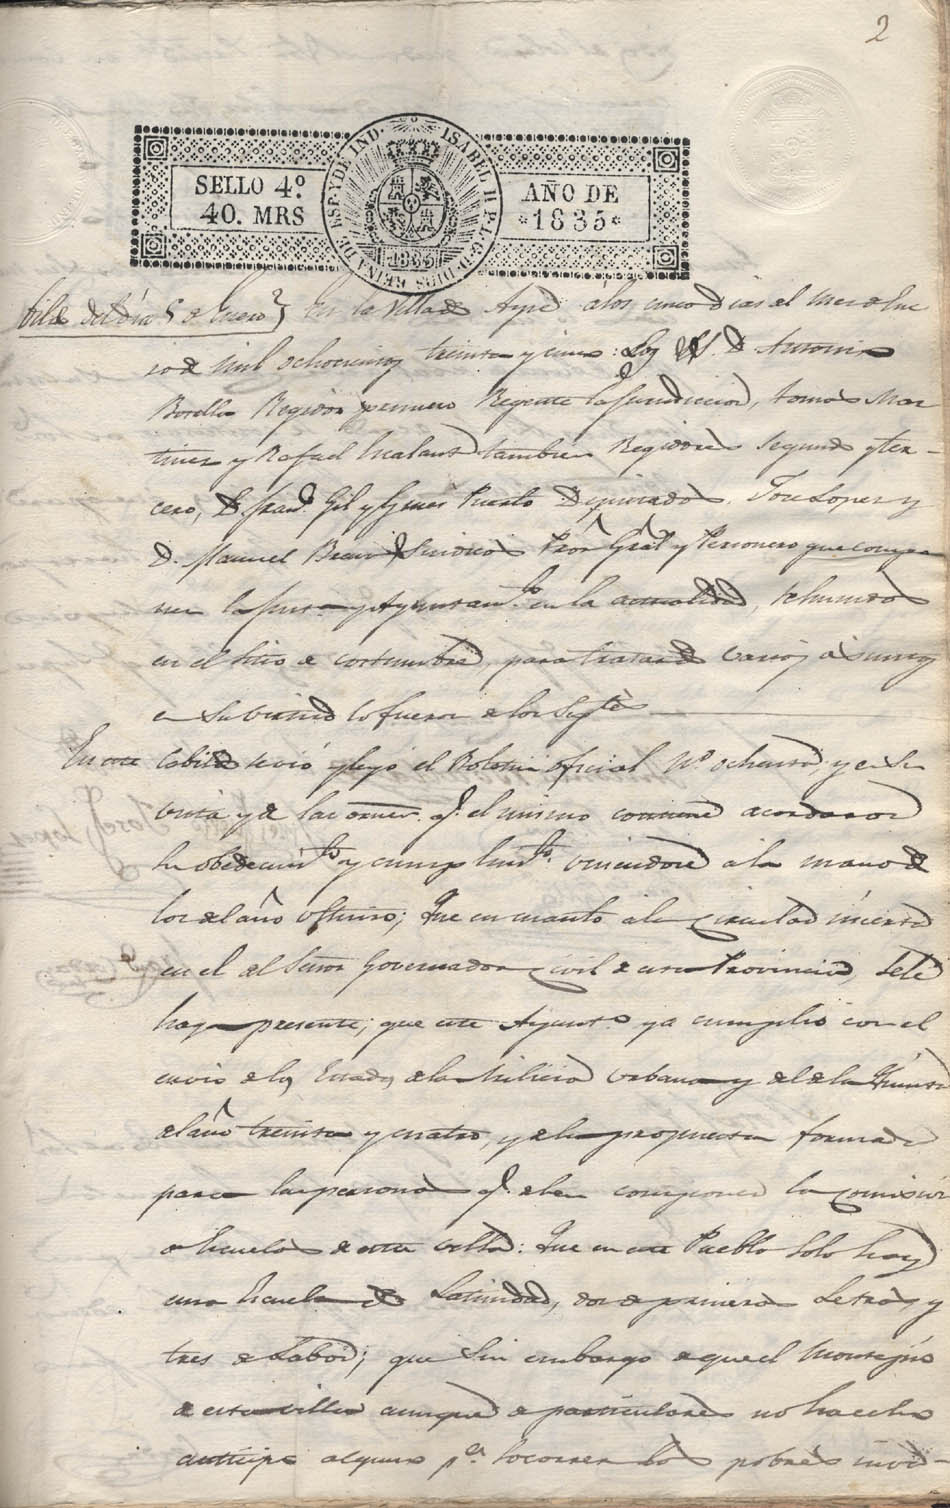 2
SELLO 4º
40. MRS
ISABEL II P. L. G. D. DIOS REINA DE ESP. Y DE IND.
1835
AÑO DE
1835
del día 5 de Enero} En la Villa de Aspe á los cinco dias del mes de Ene
ro de mil ochocientos treinta y cinco: Los SS. D. Antonio
Botella Regidor primero Regente la Jurisdiccion, Tomás Mar
tinez y Rafael Yñalant tambien Regidores Segundo y ter-
cero, D. Franco. Gil y Gines Puerto Diputados, José Lopez y
D. Manuel Bravo Sindicos Pror. Gral y Personero que compo
nen la Junta y Ayuntamto. en la actualidad, rehunidos
en el sitio de costumbre, para tratar de varios asuntos
en su virtud lo fueron de los Sigtes.
En este Cabildo se vió y leyó el Boletin oficial Nº. ochenta, y en su
vista y de las orns. q. el mismo contiene acordaron
su obedecimto. y cumplimto. uniendose á la mano de
los del año ultimo; Que en cuanto á la circular inserta
en el del Señor Governador civil de esta Provincia, se le
haga presente, que este Ayunto. ya cumplió con el
envio de los Estados de la Milicia Urbana y del de la Quinta
del año treinta y cuatro, y de la propuesta formada
para las personas q. deben componer la Comision
de Escuelas de esta villa: Que en este Pueblo solo hay
una Escuela de Latinidad, dos de primeras Letras y
tres de Labor; que sin embargo de que el Montepio
de esta villa aunque de particulares no ha echo
anticipo alguno pa. socorrer los pobres